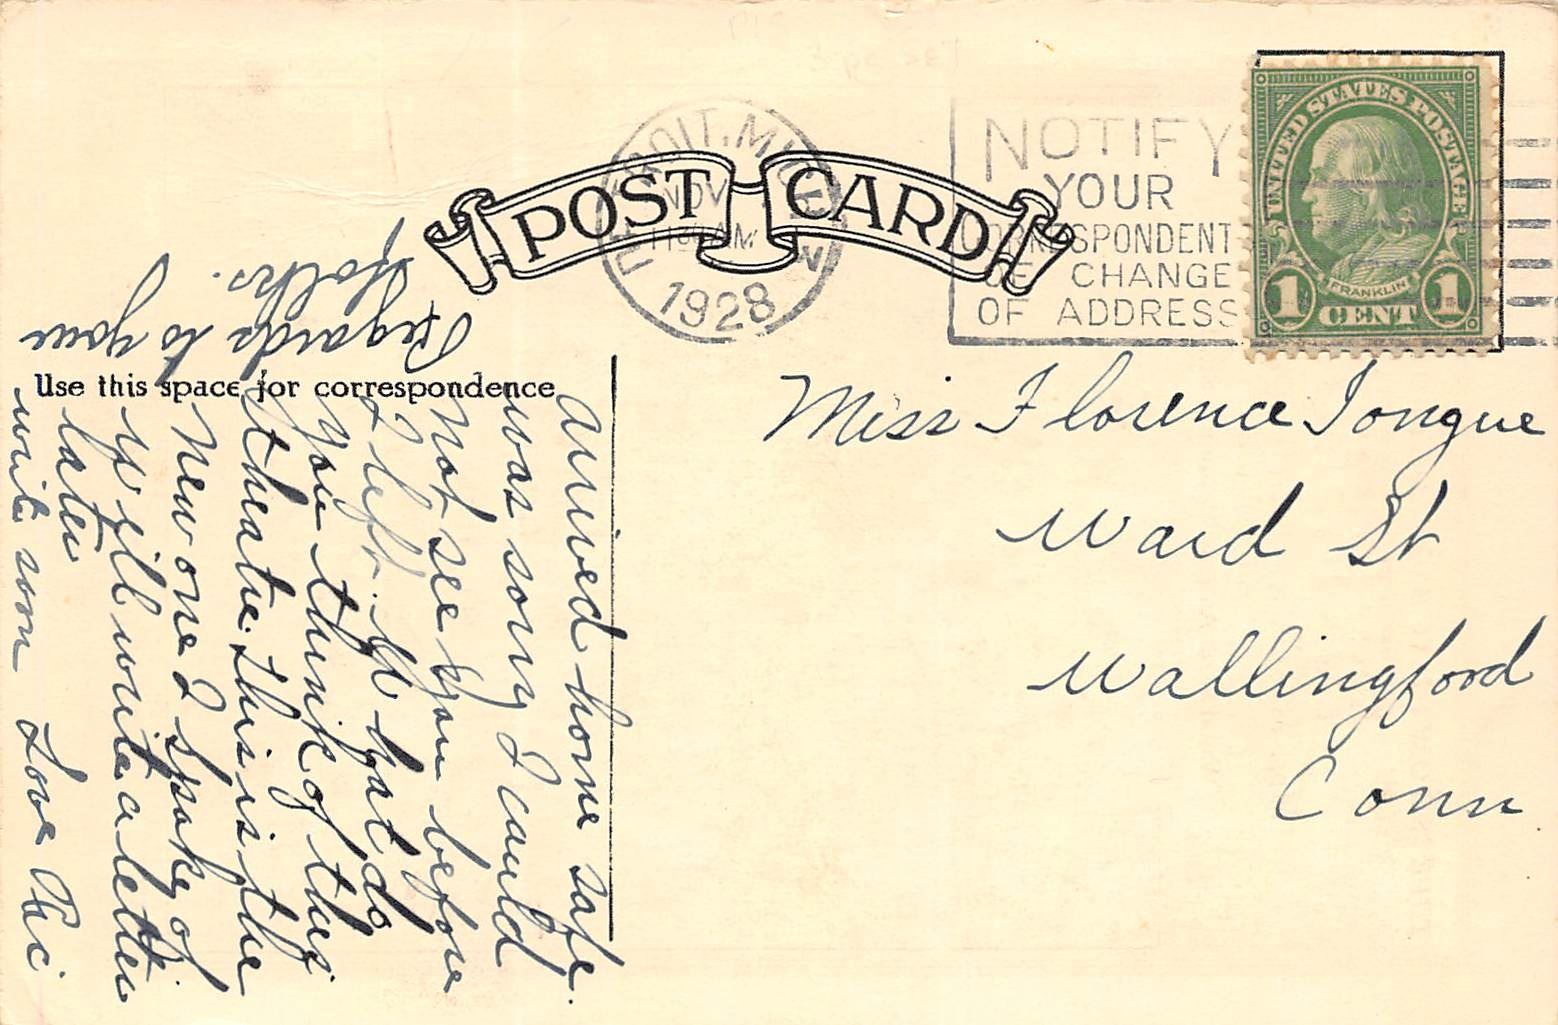 POST CARD
DETROIT, MICHIGAN
NOV
11 30 AM
1928
NOTIFY
YOUR
CORRESPONDENTS
OF CHANGE
OF ADDRESS
UNITED STATES POSTAGE
FRANKLIN
1 CENT 1
Use this space for correspondence
Miss Florence Tongue
Ward St
Wallingford
Conn
Arrived home safe.
was sorry I could
Not see you before
I left. What do
you think of this
theatre. This is the
New one I spoke of
will write a letter
later
write soon Love
Regards to your
folks.